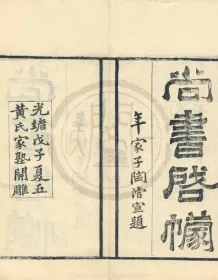 尚書啓幪
年家子陶濬宣題
光緒戊子夏五
黃氏家塾開雕